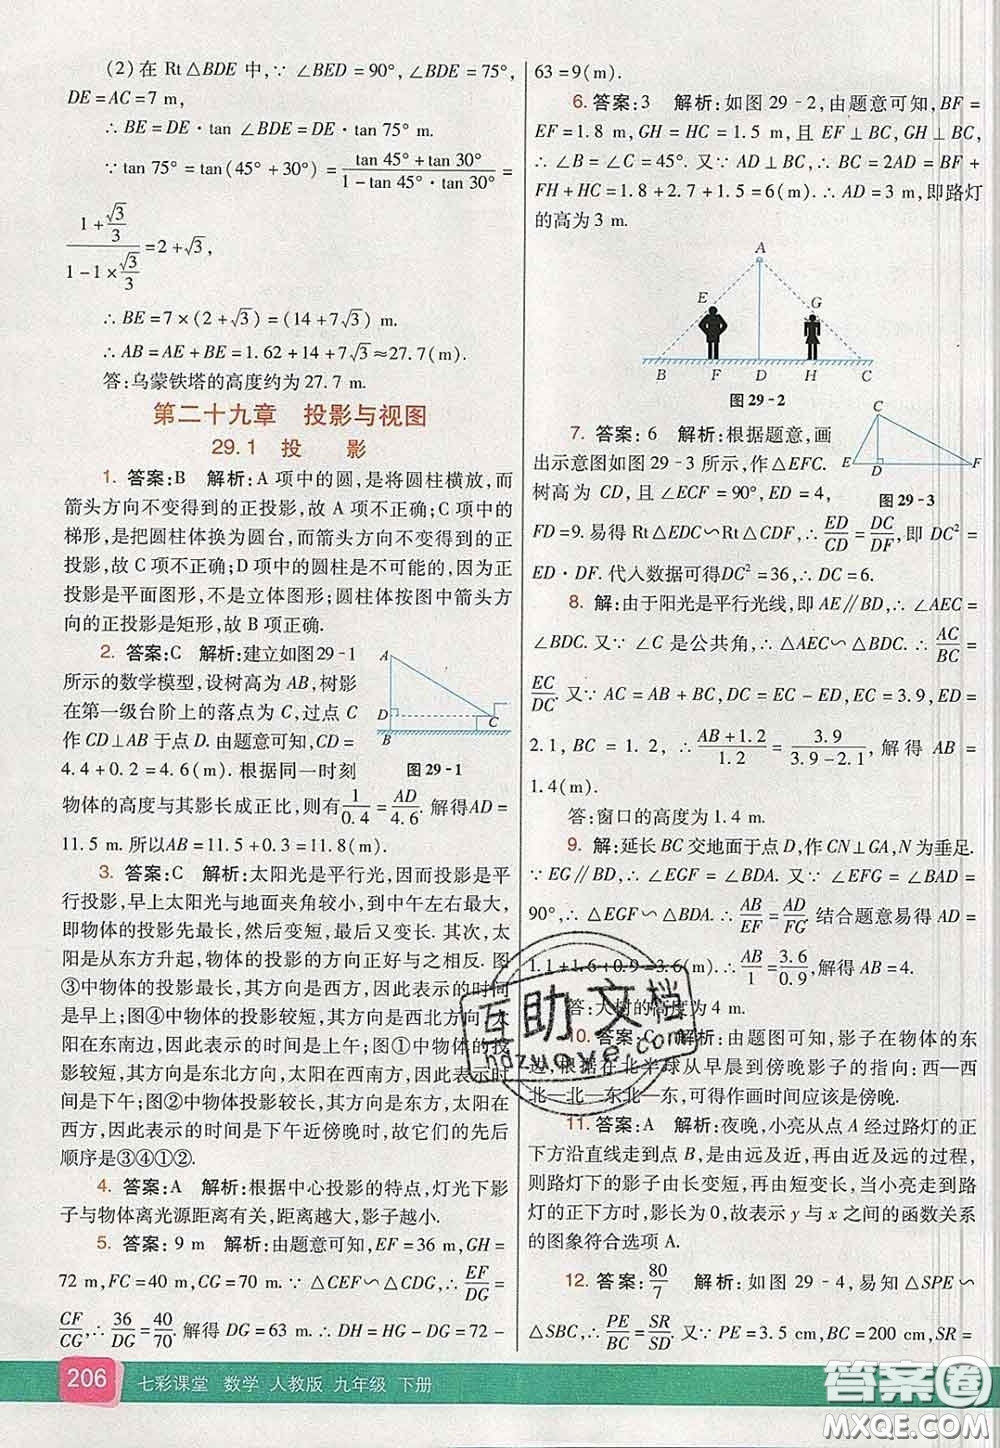 (2)在 Rt△BDE 中,∵ ∠BED=90°,∠BDE=75°,
DE=AC=7 m,
∴ BE=DE·tan ∠BDE=7tan 75° m.
∵tan 75°=tan(45°+30°)=(tan 45°+tan 30°)/(1-tan 45°·tan 30°)=
(1+√3/3)/(1-1×√3/3)=2+√3,
∴ BE=7×(2+√3)=(14+7√3) m.
∴ AB=AE+BE=1.62+14+7√3≈27.7(m).
答:乌蒙铁塔的高度约为27.7 m.
第二十九章 投影与视图
29.1 投 影
1. 答案:B 解析:A 项中的圆,是将圆柱横放,而
箭头方向不变得到的正投影,故 A 项不正确;C 项中的
梯形,是把圆柱体换为圆台,而箭头方向不变得到的正
投影,故 C 项不正确;D 项中的圆柱是不正确的,因为正
投影是平面图形,不是立体图形;圆柱体按图中箭头方
向的正投影是矩形,故 B 项正确.
2. 答案:C 解析:建立如图29-1
所示的数学模型,设树高为 AB,树影
在第一级台阶上的落点为 C,过点 C
作 CD⊥AB 于点 D.由题意可知,CD=
4.4+0.2=4.6(m).根据同一时刻
物体的高度与其影长成正比,则有1/0.4=AD/4.6.解得AD=
11.5 m.所以AB=11.5+0.3=11.8(m).
A
D
B
C
图29-1
3. 答案:C 解析:太阳光是平行光,因而投影是平
行投影,早上太阳光与地面夹角较小,到中午左右最大,
即物体的投影先最长,然后变短,最后变长.其次,太
阳是从东方升起,物体的投影的方向正好与之相反.图
③中物体的投影最长,其方向是正西,因此表示的时间
是早上;图④中物体的投影较短,其方向是西北方向,太
阳在东南边,因此表示的时间是上午;图①中物体的投
影较短,其方向是东北方向,太阳在西南方,因此表示的
时间是下午;图②中物体投影较长,其方向是东方,太阳
在西方,表示的时间是下午近傍晚,故它们的先后
顺序是③④①②.
4. 答案:A 解析:根据中心投影的特点,灯光下影
子与物体离光源距离有关,距离越大,影子越小.
5. 答案:9 m 解析:由题意可知,EF=36 m,GH=
72 m,FC=40 m,CG=70 m.∵ △CEF∽△CDG,∴EF/DG=
CF/CG,∴36/DG=40/70.解得 DG=63 m.∴ DH=HG-DG=72-
63=9(m).
6. 答案:3 解析:如图 29-2,由题意可知,BF=
EF=1.8 m,GH=HC=1.5 m,且 EF⊥BC,GH⊥BC,
∴ ∠B=∠C=45°.又∵ AD⊥BC,∴ BC=2AD=BF+
FH+HC=1.8+2.7+1.5=6(m).∴ AD=3 m,即路灯
的高为 3 m.
A
E
G
B F D H C
图29-2
7. 答案:6 解析:根据题意,画
出示意图如图 29-3 所示,作△EFC.
树高为 CD,且 ∠ECF=90°,ED=4,
FD=9.易得 Rt△EDC∽Rt△CDF,∴ED/CD=DC/DF,即 DC²=
ED·DF.代人数据可得DC²=36,∴ DC=6.
C
E
D
F
图29-3
8. 解:由于阳光是平行光线,即 AE∥BD,∴ ∠AEC=
∠BDC.又∵ ∠C 是公共角,∴ △AEC∽△BDC.∴AC/BC=
EC/DC.又∵ AC=AB+BC,DC=EC-ED,EC=3.9,ED=
2.1,BC=1.2,∴(AB+1.2)/1.2=3.9/(3.9-2.1),解得 AB=
1.4(m).
答:窗口的高度为 1.4 m.
9. 解:延长 BC 交地面于点 D,作 CN⊥GA,N 为垂足.
∵ EG∥BD,∴ ∠EGF=∠BDA.又∵ ∠EFG=∠BAD=
90°,∴ △EGF∽△BDA.∴AB/EF=AD/FG.结合题意易得 AD=
1.1+1.6+0.9=3.6(m).∴AB/1=3.6/0.9.解得 AB=4.
答:大树的高度为 4 m.
10. 答案:C 解析:由题图可知,影子在物体的东
边.根据在北半球从早晨到傍晚影子的指向:西—西
北—北—东北—东,可得作画时间应该是傍晚.
11. 答案:A 解析:夜晚,小亮从点 A 经过路灯的正
下方沿直线走到点 B,是由远及近,再由近及远的过程,
则路灯下的影子由长变短,再由短变长,当小亮走到路
灯的正下方时,影长为0,故表示 y 与 x 之间的函数关系
的图象符合选项 A.
12. 答案:80/7 解析:如图 29-4,易知 △SPE∽
△SBC,∴PE/BC=SR/SD.又∵ PE=3.5 cm,BC=200 cm,SR=
206 七彩课堂 数学 人教版 九年级 下册
互助文档
hdzuoye.com
答案圈
MXQE.COM